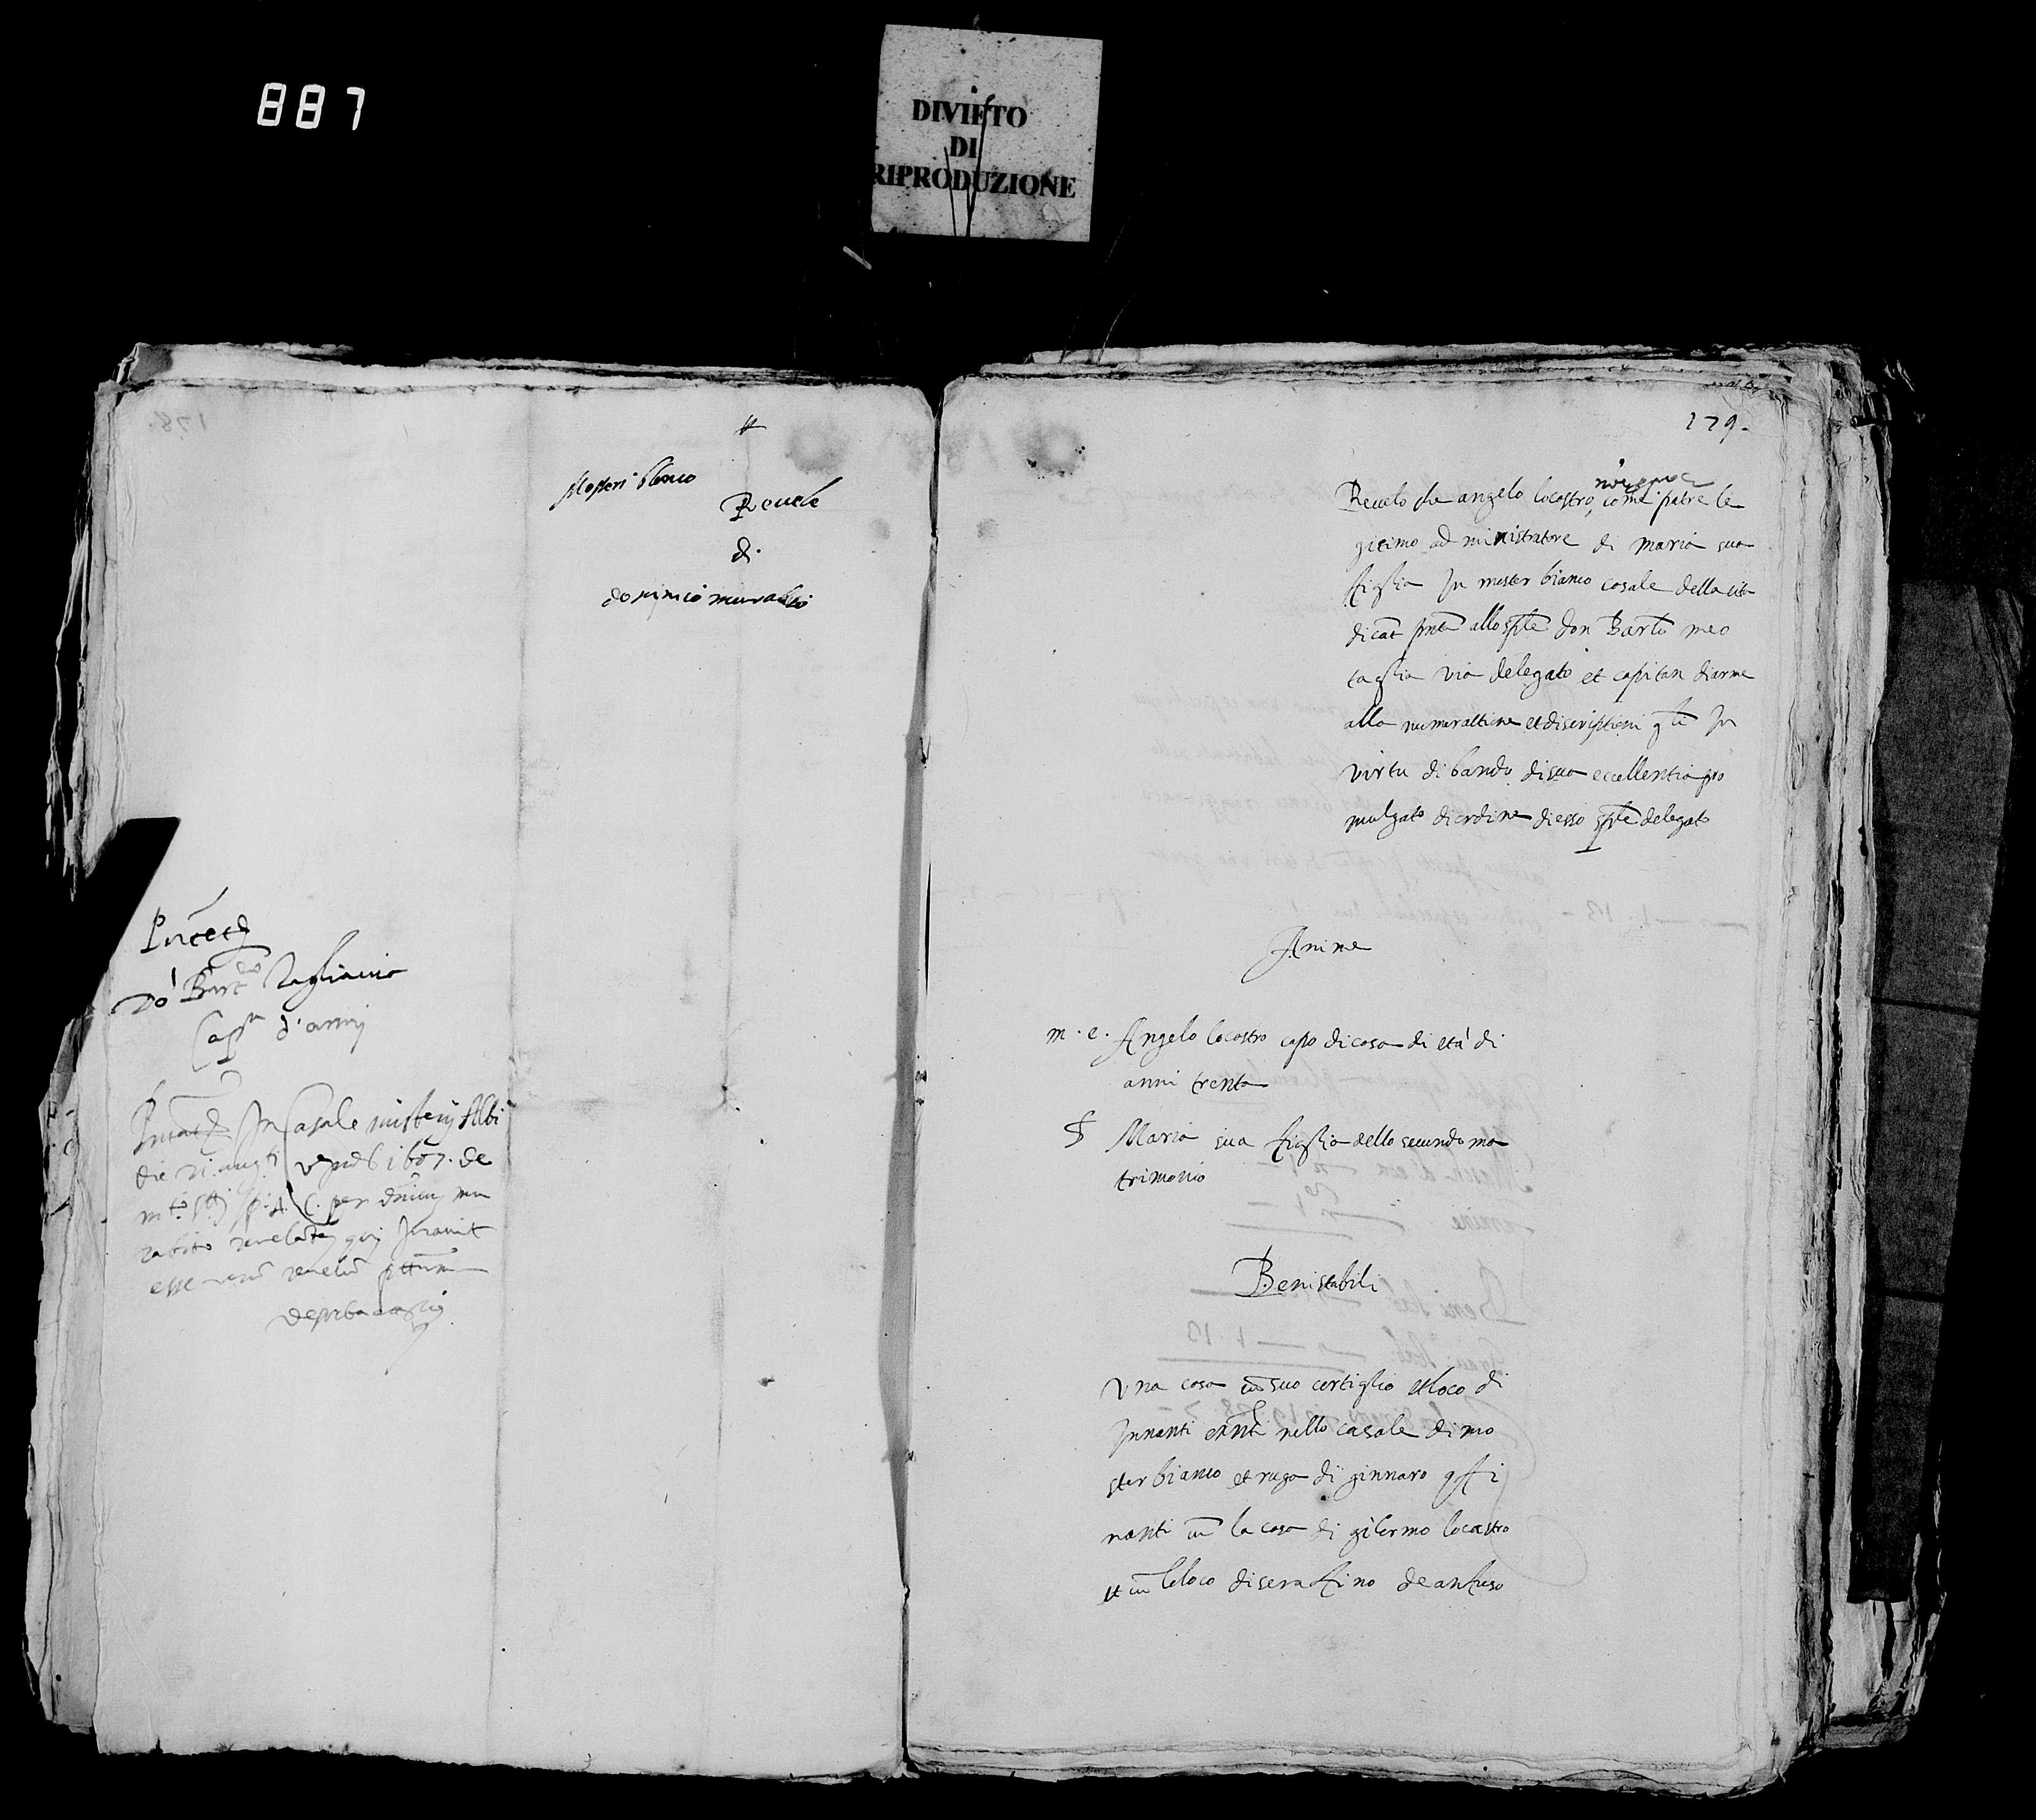 887
DIVIETO
DI
RIPRODUZIONE
Mosteri bianco
Revele
di
dominico murabito
Pñtetʳ
Do Bartᵉᵒ Tagliavia
Capⁿ d'armj
In Casale misterij Albi
die 1607. de
per
rabito revelantem qui Juravit
esse revelum
179.
Revelo che angelo locastro, come patre le
gitimo administratore di maria sua
figlia In mester bianco casale della cita
di cat pntã allo spte don Bartõ meo
taglia via delegato et capitan diarme
alla numerattione et discriptioni In
virtu di bando di sua eccellentia pro
mulgato di ordine di esso spte delegato
Anime
m. e. Angelo locastro capo di casa di età di
anni trenta
f Maria sua figlia dello secundo ma
trimonio
Beni stabili
Una casa cũ suo cortiglio et loco di
Innanti nello casale di mo
ster bianco et ruga di ginnaro
nanti cũ la casa di gilermo locastro
et cũ lo loco di serafino de anfuso